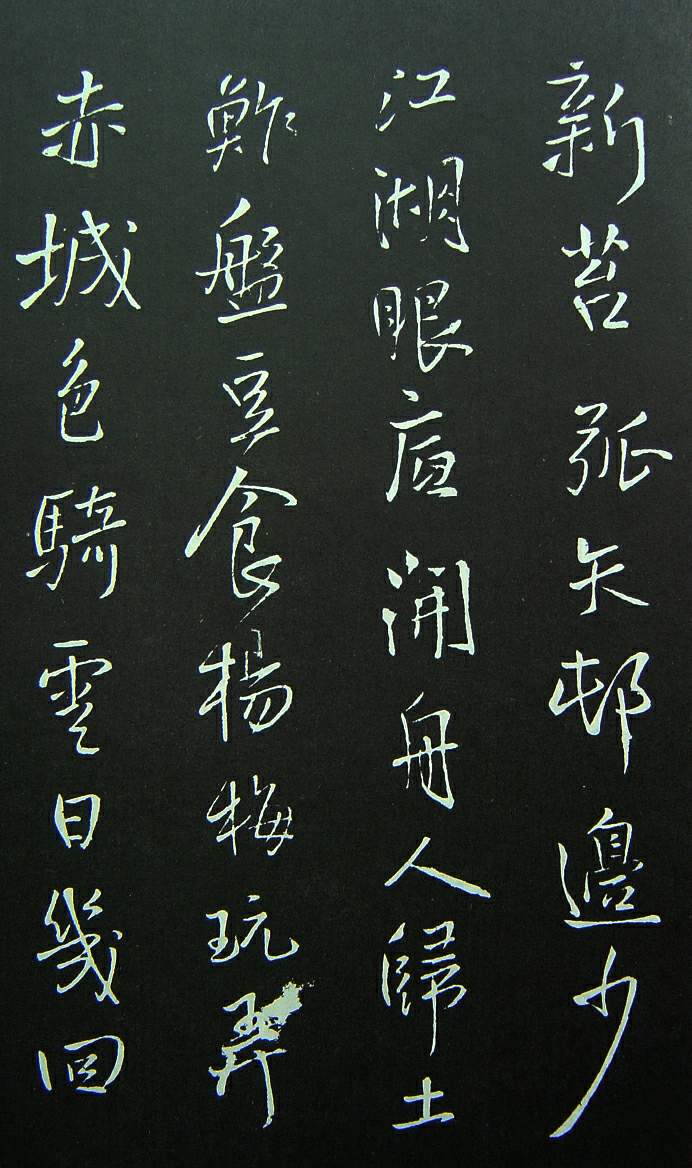 新苔弧矢邨邊少
江湖眼底開舟人歸土
鮓盤豆食楊梅玩弄
赤城色騎雲日幾回